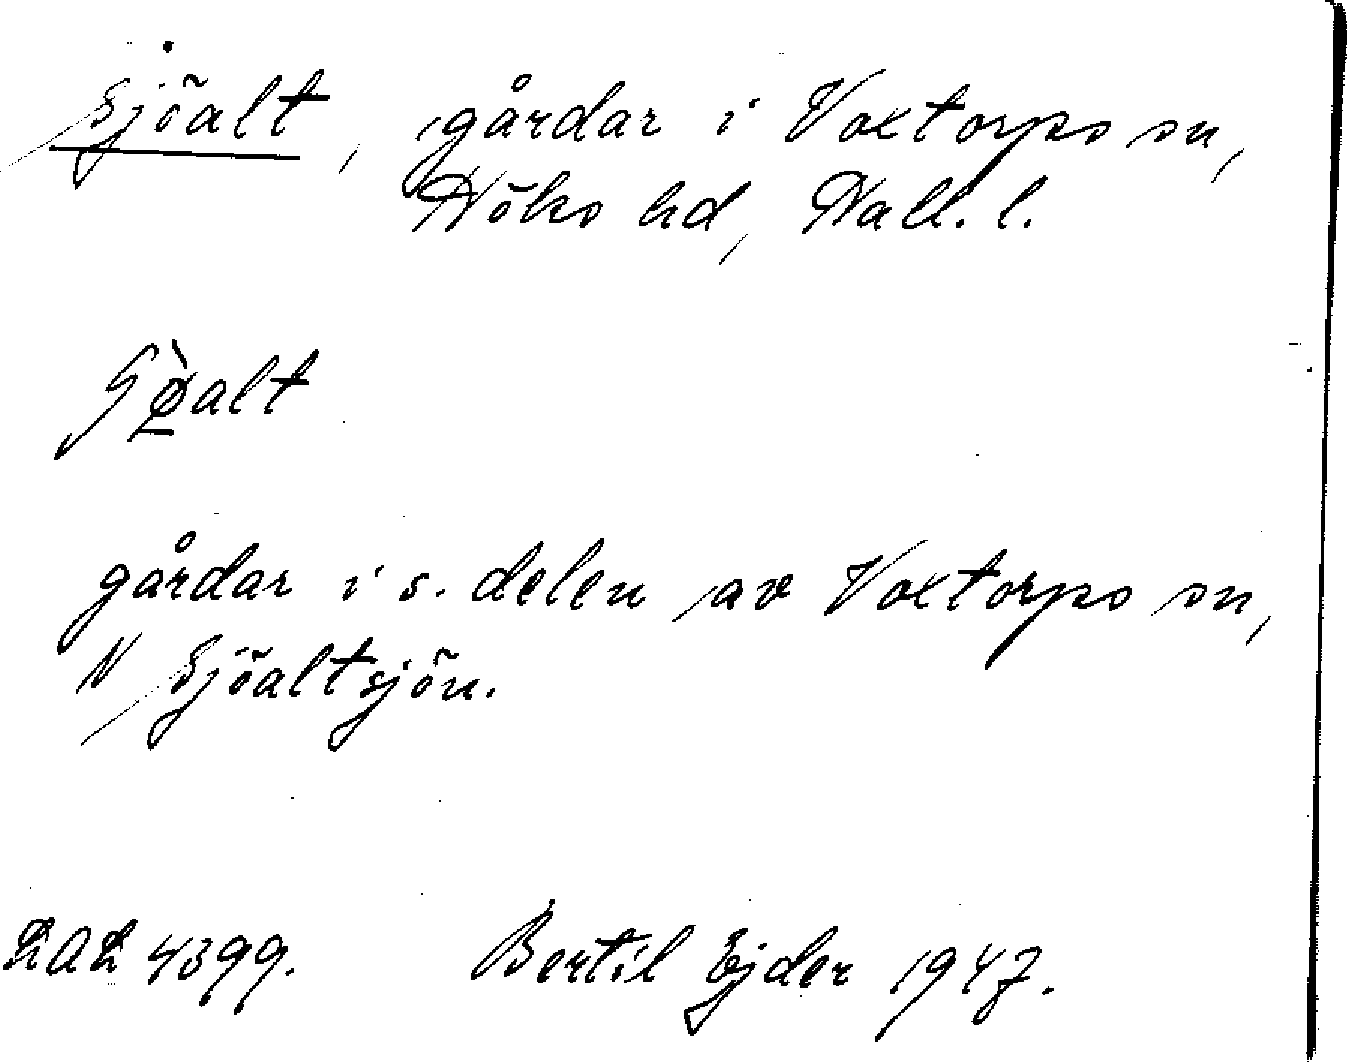 Sjöalt, gårdar i Voxtorps sn,
Höks hd, Hall. l.
ʃø̀alt
gårdar i s. delen av Voxtorps sn,
N Sjöaltsjön.
LAL 4399. Bertil Ejder 1947.